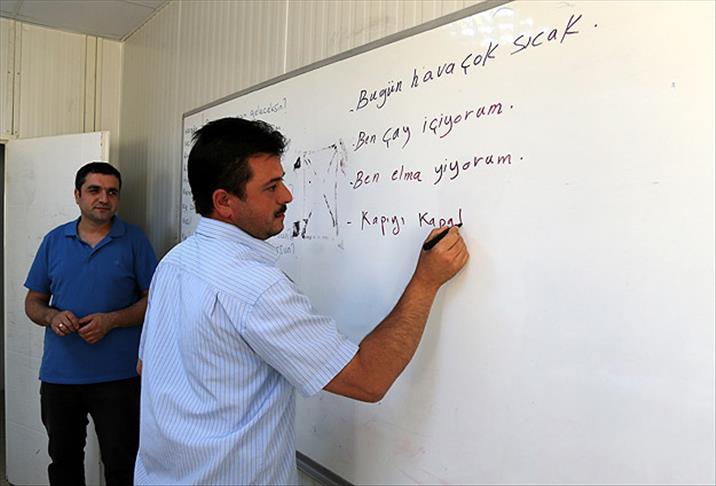 geleceksin?
- Bugün hava çok sıcak.
- Ben çay içiyorum.
- Ben elma yiyorum.
- Kapıyı Kapa